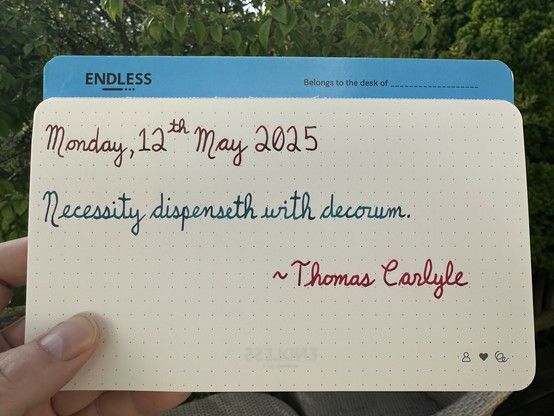 ENDLESS
Belongs to the desk of
Monday, 12th May 2025
Necessity dispenseth with decorum.
~Thomas Carlyle
ENDLESS